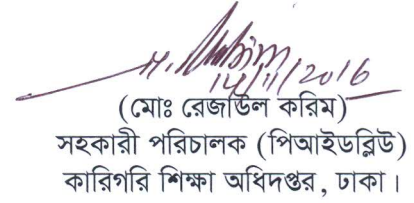 14/11/2016
(মোঃ রেজাউল করিম)
সহকারী পরিচালক (পিআইডব্লিউ)
কারিগরি শিক্ষা অধিদপ্তর, ঢাকা।